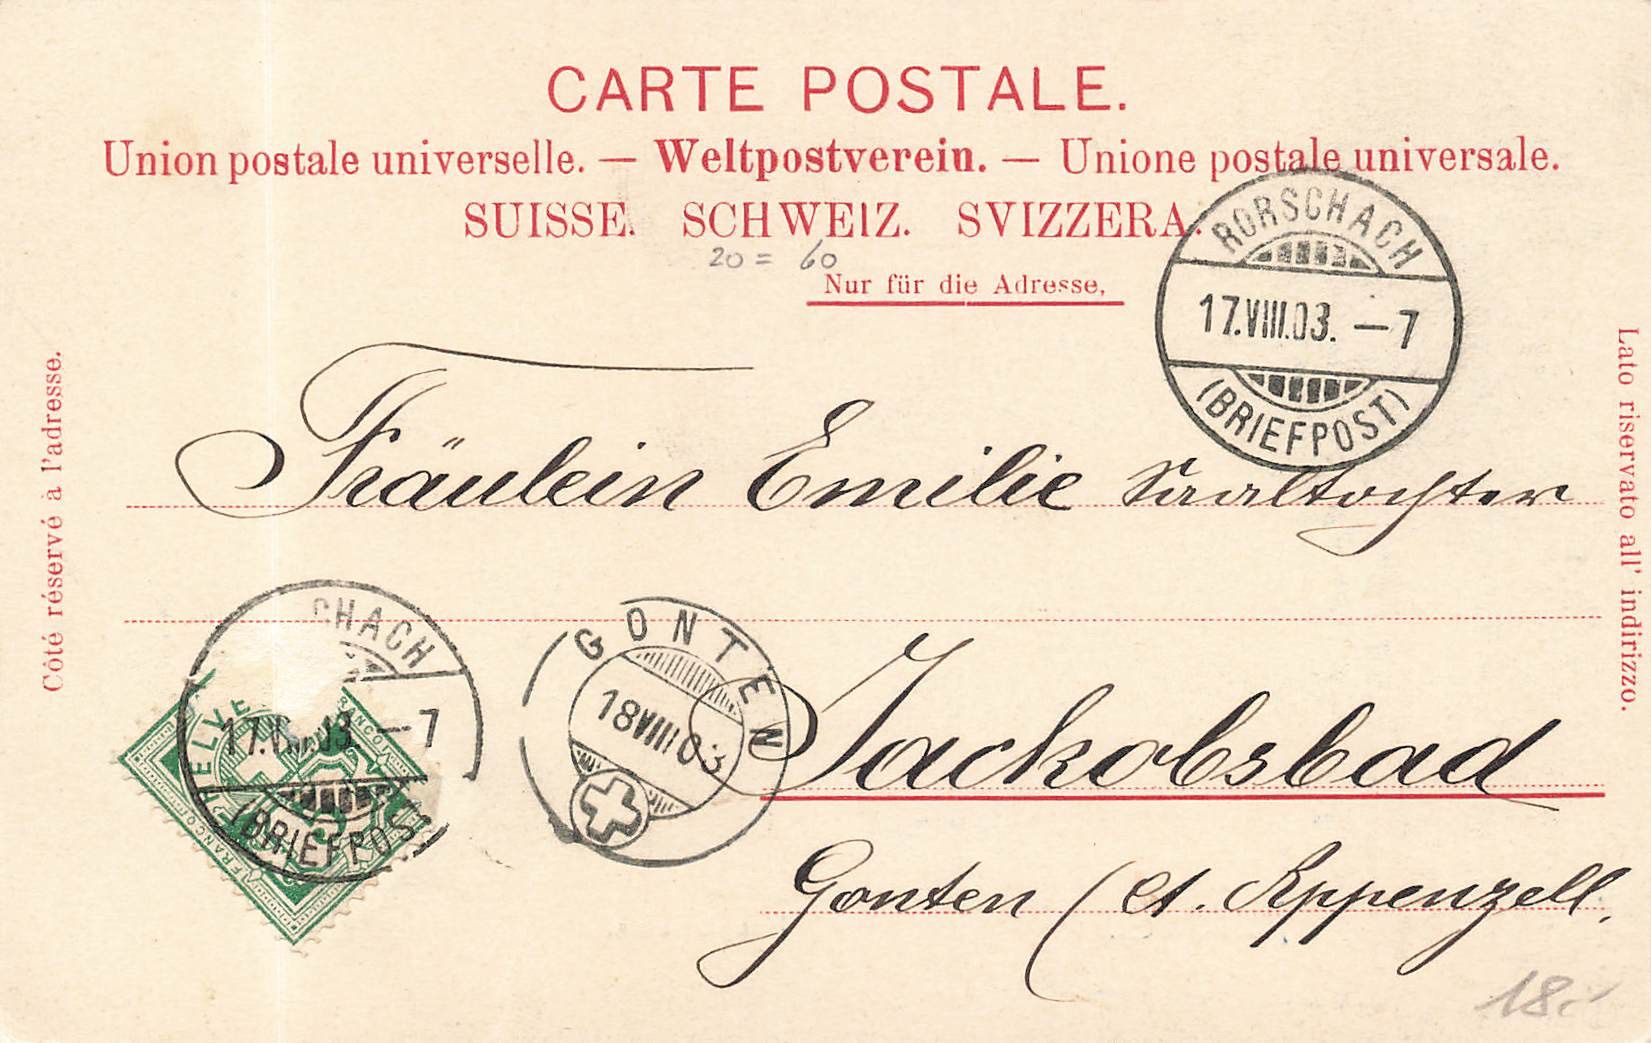 CARTE POSTALE.
Union postale universelle. — Weltpostverein. — Unione postale universale.
SUISSE. SCHWEIZ. SVIZZERA.
20 = 60
Nur für die Adresse,
RORSCHACH
17.VIII.03. —7
(BRIEFPOST)
Côté réservé à l'adresse.
Lato riservato all' indirizzo.
Fräulein Emilie Saaltochter
CHACH
17. 03. —7
(BRIEFPOST
FRANCO
GONTEN
18 VIII 03
Jackobsbad
Gonten (Ct. Appenzell.
18.-